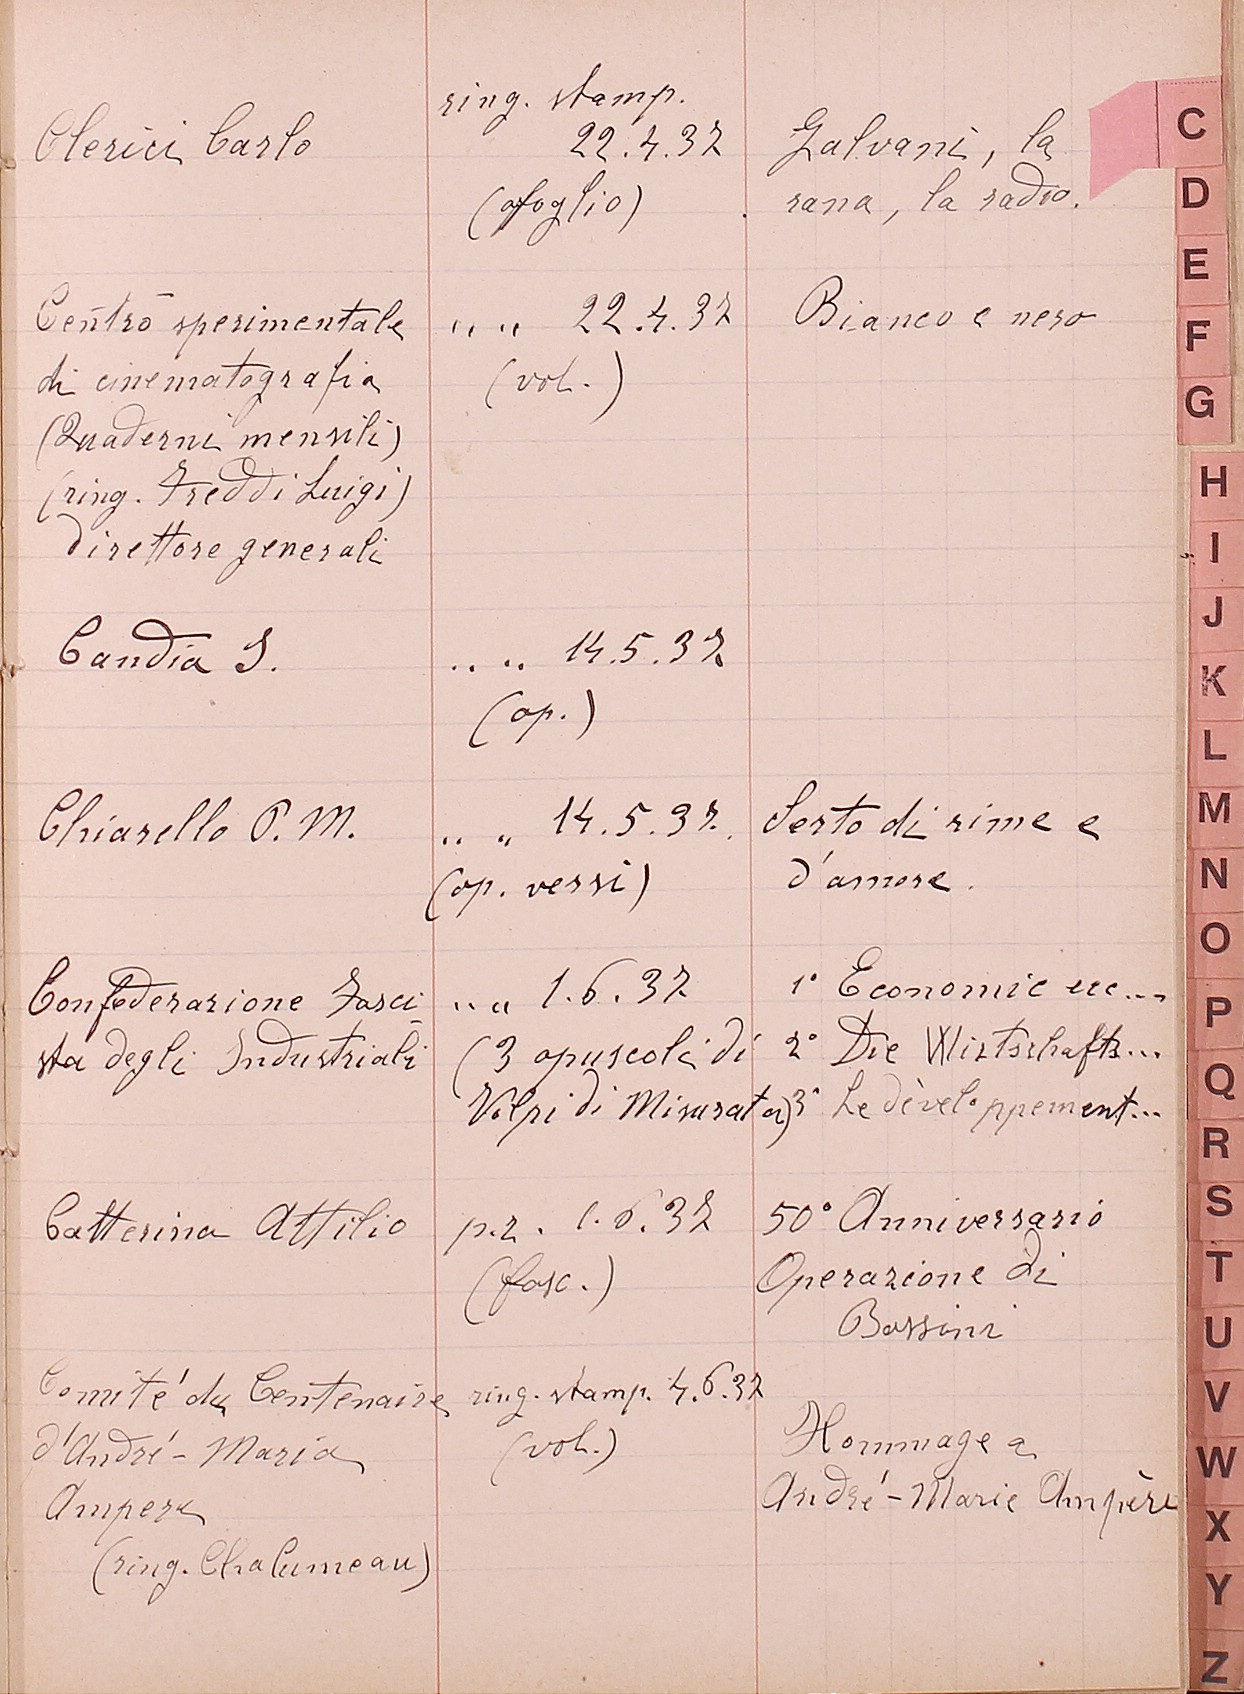 ring. stamp.
Clerici Carlo 22.4.37 Galvani, la
(foglio) rana, la radio.
Centro sperimentale " " 22.4.37 Bianco e nero
di cinematografia (vol.)
(Quaderni mensili)
(ring. Freddi Luigi)
direttore generali
Candia S. " " 14.5.37
(op.)
Chiarello P. M. " " 14.5.37. Serto di rime e
(op. versi) d'amore.
Confederazione Fasci " " 1.6.37 1° Economic ecc...
sta degli Industriali (3 opuscoli di 2° Die Wirtschafts...
Volpi di Misurata) 3° Le dévéloppement...
Catterina Attilio p.r. 1.6.37 50° Anniversario
(fasc.) Operazione di
Bassini
Comité du Centenaire ring. stamp. 4.6.37
d'André-Maria (vol.) Hommage a
Ampere André-Marie Ampère
(ring. Chalumeau)
C
D
E
F
G
H
I
J
K
L
M
N
O
P
Q
R
S
T
U
V
W
X
Y
Z